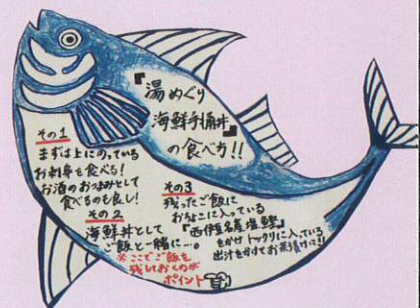 『湯めぐり
海鮮手桶丼』
の食べ方!!
その1
まずは上にのっている
お刺身を食べる!
お酒のおつまみとして
食べるのも良し!
その2
海鮮丼として
ご飯と一緒に…。
※ここでご飯を
残しておくのが
ポイント
その3
残ったご飯に
おちょこに入っている
『西伊豆名産塩鰹』
をかけトックリに入っている
出汁をかけてお茶漬けに!!